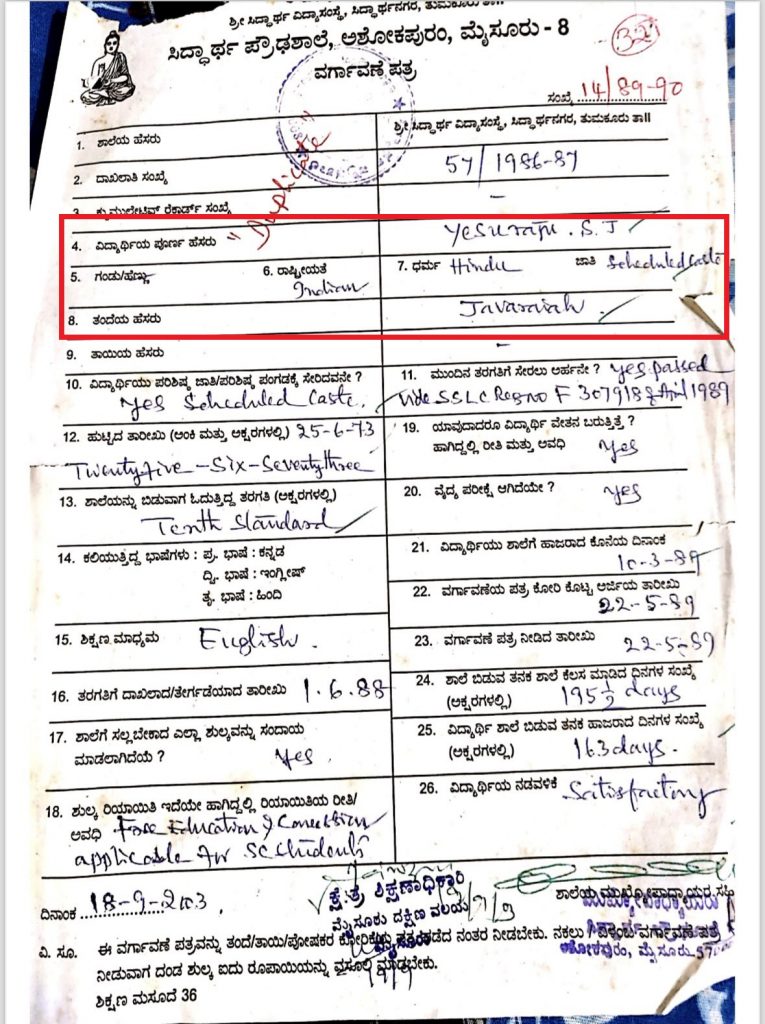 ಶ್ರೀ ಸಿದ್ಧಾರ್ಥ ವಿದ್ಯಾಸಂಸ್ಥೆ, ಸಿದ್ಧಾರ್ಥನಗರ, ತುಮಕೂರು ತಾ॥
ಸಿದ್ಧಾರ್ಥ ಪ್ರೌಢಶಾಲೆ, ಅಶೋಕಪುರಂ, ಮೈಸೂರು - 8
ವರ್ಗಾವಣೆ ಪತ್ರ
ಸಂಖ್ಯೆ 14/89-90
"Duplicate"
1. ಶಾಲೆಯ ಹೆಸರು ಶ್ರೀ ಸಿದ್ಧಾರ್ಥ ವಿದ್ಯಾಸಂಸ್ಥೆ, ಸಿದ್ಧಾರ್ಥನಗರ, ತುಮಕೂರು ತಾ॥
2. ದಾಖಲಾತಿ ಸಂಖ್ಯೆ 57/1986-87
3. ಕ್ಯುಮುಲೇಟಿವ್ ರೆಕಾರ್ಡ್ ಸಂಖ್ಯೆ -
4. ವಿದ್ಯಾರ್ಥಿಯ ಪೂರ್ಣ ಹೆಸರು Yesuraju . S. J
5. ಗಂಡು/ಹೆಣ್ಣು 6. ರಾಷ್ಟ್ರೀಯತೆ Indian 7. ಧರ್ಮ Hindu ಜಾತಿ Scheduled Caste
8. ತಂದೆಯ ಹೆಸರು Javaraiah
9. ತಾಯಿಯ ಹೆಸರು -
10. ವಿದ್ಯಾರ್ಥಿಯು ಪರಿಶಿಷ್ಠ ಜಾತಿ/ಪರಿಶಿಷ್ಠ ಪಂಗಡಕ್ಕೆ ಸೇರಿದವನೇ ?
Yes Scheduled Caste
11. ಮುಂದಿನ ತರಗತಿಗೆ ಸೇರಲು ಅರ್ಹನೇ ? Yes passed
Vide SSLC Reg no F 307918 April 1989
12. ಹುಟ್ಟಿದ ತಾರೀಖು (ಅಂಕಿ ಮತ್ತು ಅಕ್ಷರಗಳಲ್ಲಿ) 25-6-73
Twenty five - Six - Seventy three
19. ಯಾವುದಾದರೂ ವಿದ್ಯಾರ್ಥಿ ವೇತನ ಬರುತ್ತಿತ್ತೆ ?
ಹಾಗಿದ್ದಲ್ಲಿ ರೀತಿ ಮತ್ತು ಅವಧಿ Yes
13. ಶಾಲೆಯನ್ನು ಬಿಡುವಾಗ ಓದುತ್ತಿದ್ದ ತರಗತಿ (ಅಕ್ಷರಗಳಲ್ಲಿ)
Tenth Standard
20. ವೈದ್ಯ ಪರೀಕ್ಷೆ ಆಗಿದೆಯೇ ? Yes
14. ಕಲಿಯುತ್ತಿದ್ದ ಭಾಷೆಗಳು : ಪ್ರ. ಭಾಷೆ : ಕನ್ನಡ
ದ್ವಿ. ಭಾಷೆ : ಇಂಗ್ಲೀಷ್
ತೃ. ಭಾಷೆ : ಹಿಂದಿ
21. ವಿದ್ಯಾರ್ಥಿಯು ಶಾಲೆಗೆ ಹಾಜರಾದ ಕೊನೆಯ ದಿನಾಂಕ
10-3-89
22. ವರ್ಗಾವಣೆಯ ಪತ್ರ ಕೋರಿ ಕೊಟ್ಟ ಅರ್ಜಿಯ ತಾರೀಖು
22-5-89
15. ಶಿಕ್ಷಣ ಮಾಧ್ಯಮ English.
23. ವರ್ಗಾವಣೆ ಪತ್ರ ನೀಡಿದ ತಾರೀಖು 22-5-89
16. ತರಗತಿಗೆ ದಾಖಲಾದ/ತೇರ್ಗಡೆಯಾದ ತಾರೀಖು 1.6.88
24. ಶಾಲೆ ಬಿಡುವ ತನಕ ಶಾಲೆ ಕೆಲಸ ಮಾಡಿದ ದಿನಗಳ ಸಂಖ್ಯೆ
(ಅಕ್ಷರಗಳಲ್ಲಿ) 195½ days
17. ಶಾಲೆಗೆ ಸಲ್ಲಬೇಕಾದ ಎಲ್ಲಾ ಶುಲ್ಕವನ್ನು ಸಂದಾಯ
ಮಾಡಲಾಗಿದೆಯೆ ? Yes.
25. ವಿದ್ಯಾರ್ಥಿ ಶಾಲೆ ಬಿಡುವ ತನಕ ಹಾಜರಾದ ದಿನಗಳ ಸಂಖ್ಯೆ
(ಅಕ್ಷರಗಳಲ್ಲಿ) 163 days.
18. ಶುಲ್ಕ ರಿಯಾಯಿತಿ ಇದೆಯೇ ಹಾಗಿದ್ದಲ್ಲಿ ರಿಯಾಯಿತಿಯ ರೀತಿ/
ಅವಧಿ Free Education &
applicable for SC Students
26. ವಿದ್ಯಾರ್ಥಿಯ ನಡವಳಿಕೆ Satisfactory
ದಿನಾಂಕ 18-9-2003.
ಕ್ಷೇತ್ರ ಶಿಕ್ಷಣಾಧಿಕಾರಿ
ಮೈಸೂರು ದಕ್ಷಿಣ ವಲಯ
ಮೈಸೂರು
ಶಾಲೆಯ ಮುಖ್ಯೋಪಾಧ್ಯಾಯರ ಸಹಿ
ಅಶೋಕಪುರಂ, ಮೈಸೂರು-57
ವಿ. ಸೂ. ಈ ವರ್ಗಾವಣೆ ಪತ್ರವನ್ನು ತಂದೆ/ತಾಯಿ/ಪೋಷಕರ ಕೋರಿಕೆಯ ಪತ್ರ ಪಡೆದ ನಂತರ ನೀಡಬೇಕು. ನಕಲು / ವಿಳಂಬ ವರ್ಗಾವಣೆ ಪತ್ರ
ನೀಡುವಾಗ ದಂಡ ಶುಲ್ಕ ಐದು ರೂಪಾಯಿಯನ್ನು ವಸೂಲಿ ಮಾಡಬೇಕು.
ಶಿಕ್ಷಣ ಮಸೂದೆ 36